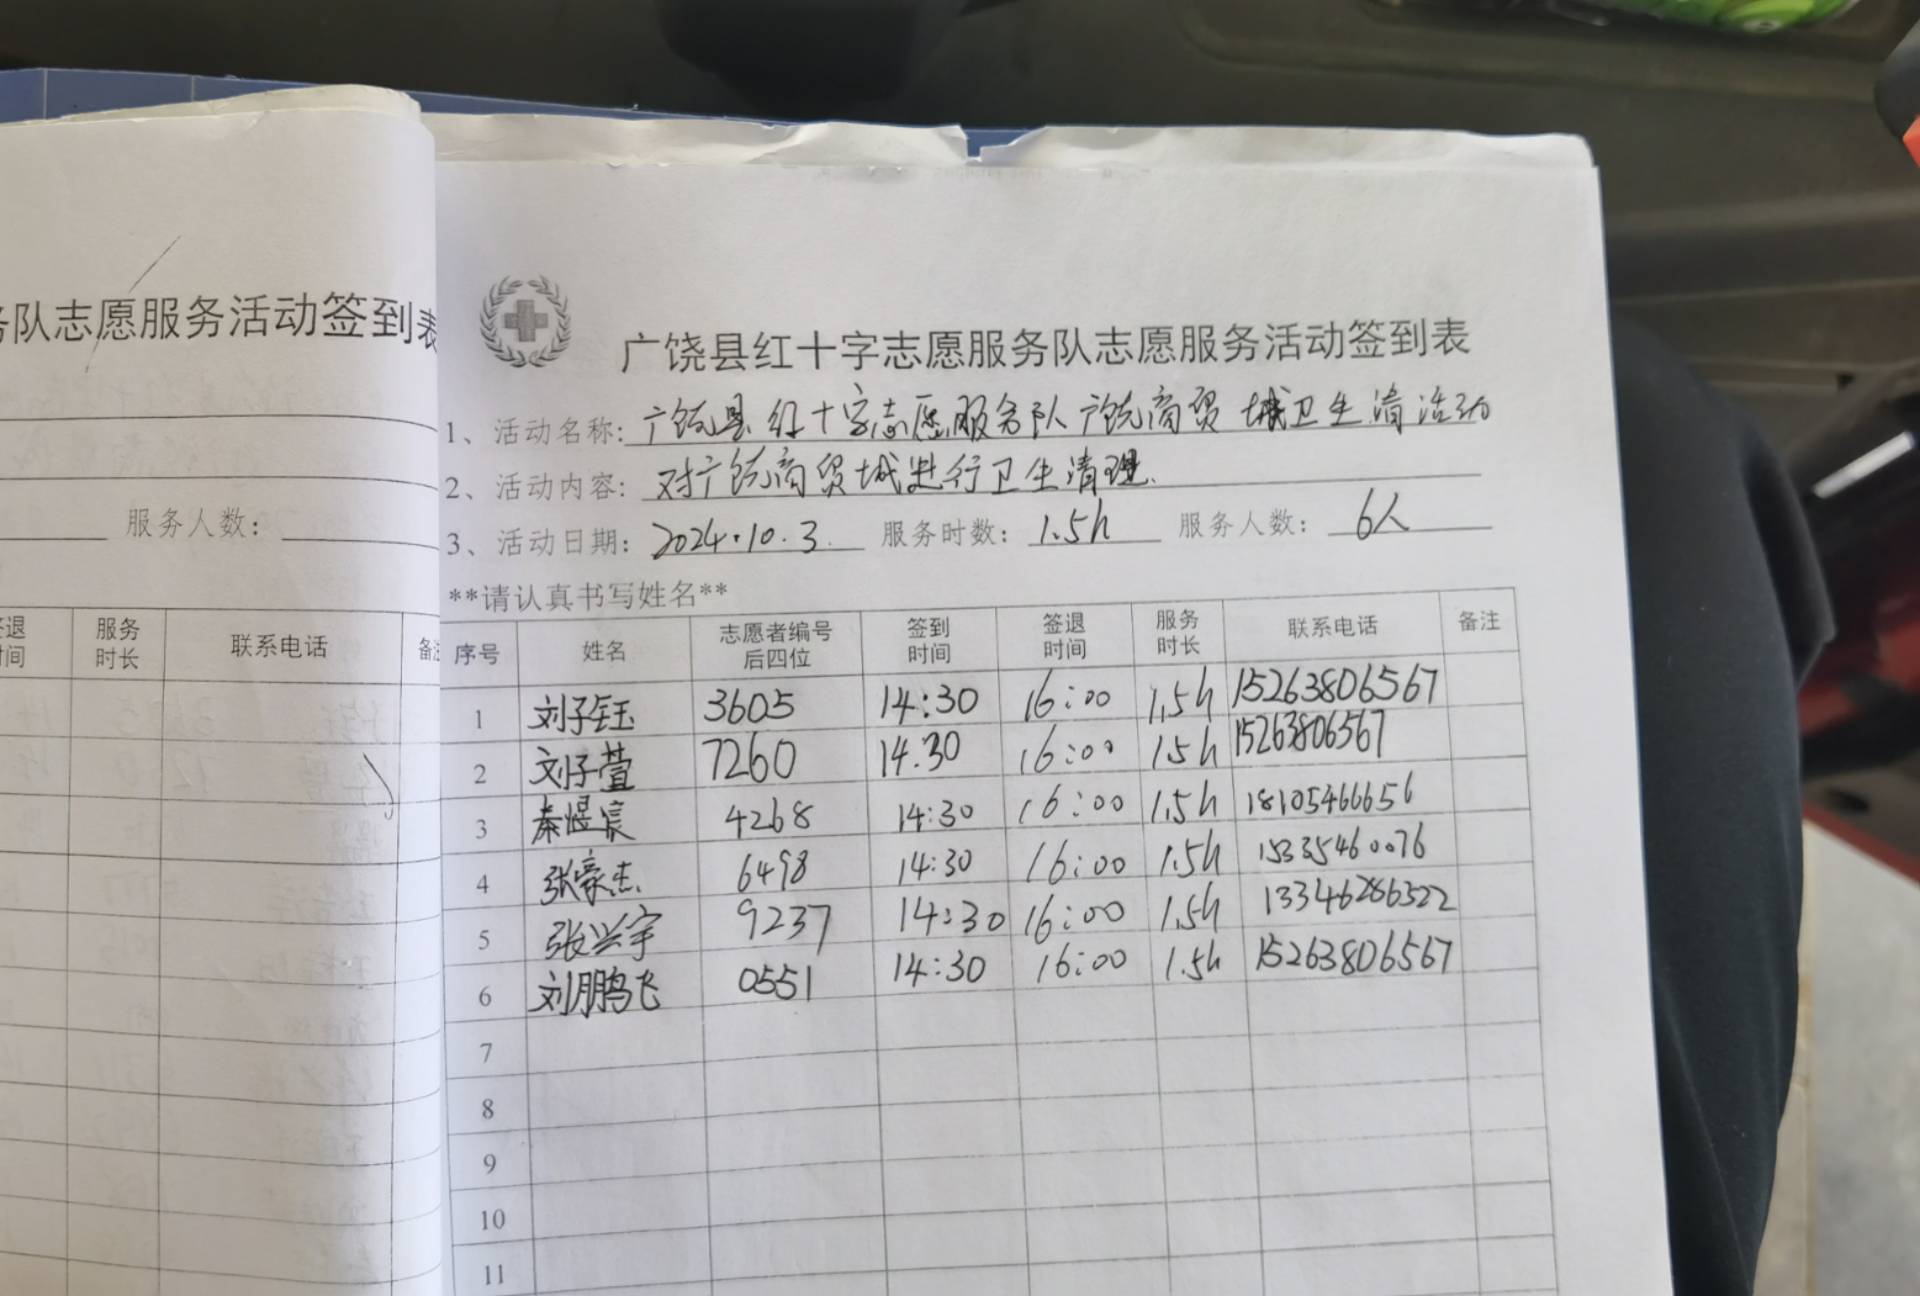 务队志愿服务活动签到表
服务人数：
签退时间 服务时长 联系电话 备注
广饶县红十字志愿服务队志愿服务活动签到表
1、活动名称: 广饶县红十字志愿服务队广饶商贸城卫生清活动
2、活动内容: 对广饶商贸城进行卫生清理.
3、活动日期: 2024.10.3. 服务时数: 1.5h 服务人数: 6人
**请认真书写姓名**
序号 姓名 志愿者编号后四位 签到时间 签退时间 服务时长 联系电话 备注
1 刘子钰 3605 14:30 16:00 1.5h 15263806567
2 刘子萱 7260 14.30 16:00 1.5h 15263806567
3 秦煜宸 4268 14:30 16:00 1.5h 18105466656
4 张豪杰 6498 14:30 16:00 1.5h 15335460076
5 张兴宇 9237 14:30 16:00 1.5h 13346286522
6 刘鹏飞 0551 14:30 16:00 1.5h 15263806567
7
8
9
10
11